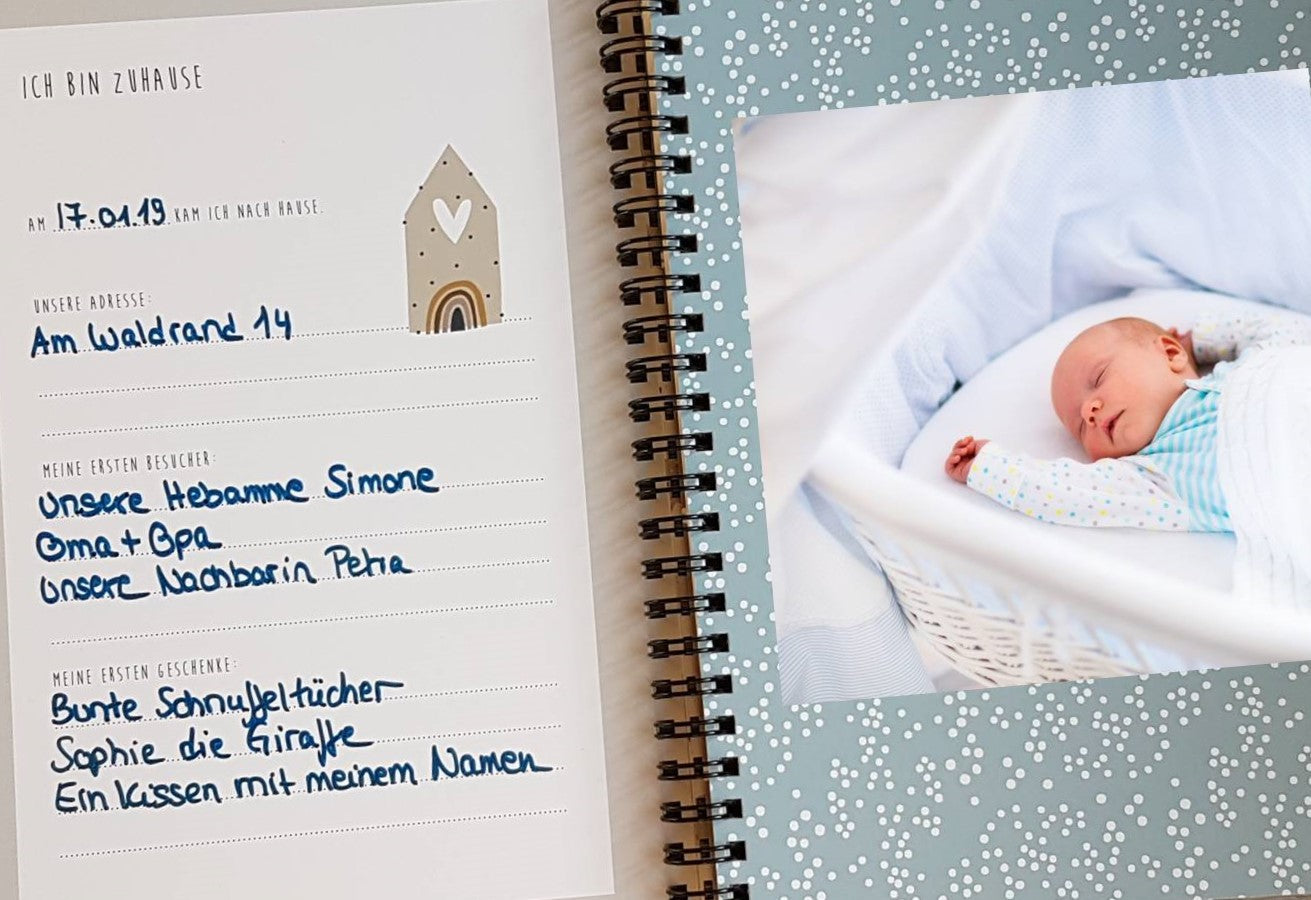 ICH BIN ZUHAUSE
AM 17.01.19 KAM ICH NACH HAUSE.
UNSERE ADRESSE:
Am Waldrand 14
MEINE ERSTEN BESUCHER:
Unsere Hebamme Simone
Oma + Opa
Unsere Nachbarin Petra
MEINE ERSTEN GESCHENKE:
Bunte Schnuffeltücher
Sophie die Giraffe
Ein Kissen mit meinem Namen